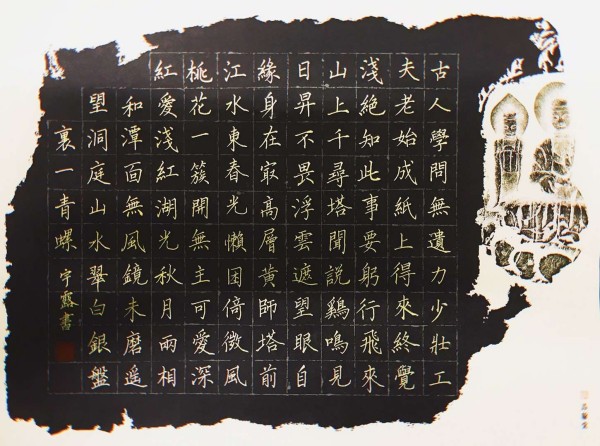 古人學問無遺力少壯工
夫老始成紙上得來終覺
淺絕知此事要躬行飛來
山上千尋塔聞說鷄鳴見
日昇不畏浮雲遮望眼自
緣身在㝡高層黄師塔前
江水東春光懶困倚微風
桃花一簇開無主可愛深
紅愛淺紅湖光秋月兩相
和潭面無風鏡未磨遥
望洞庭山水翠白銀盤
裏一青螺 宇露書